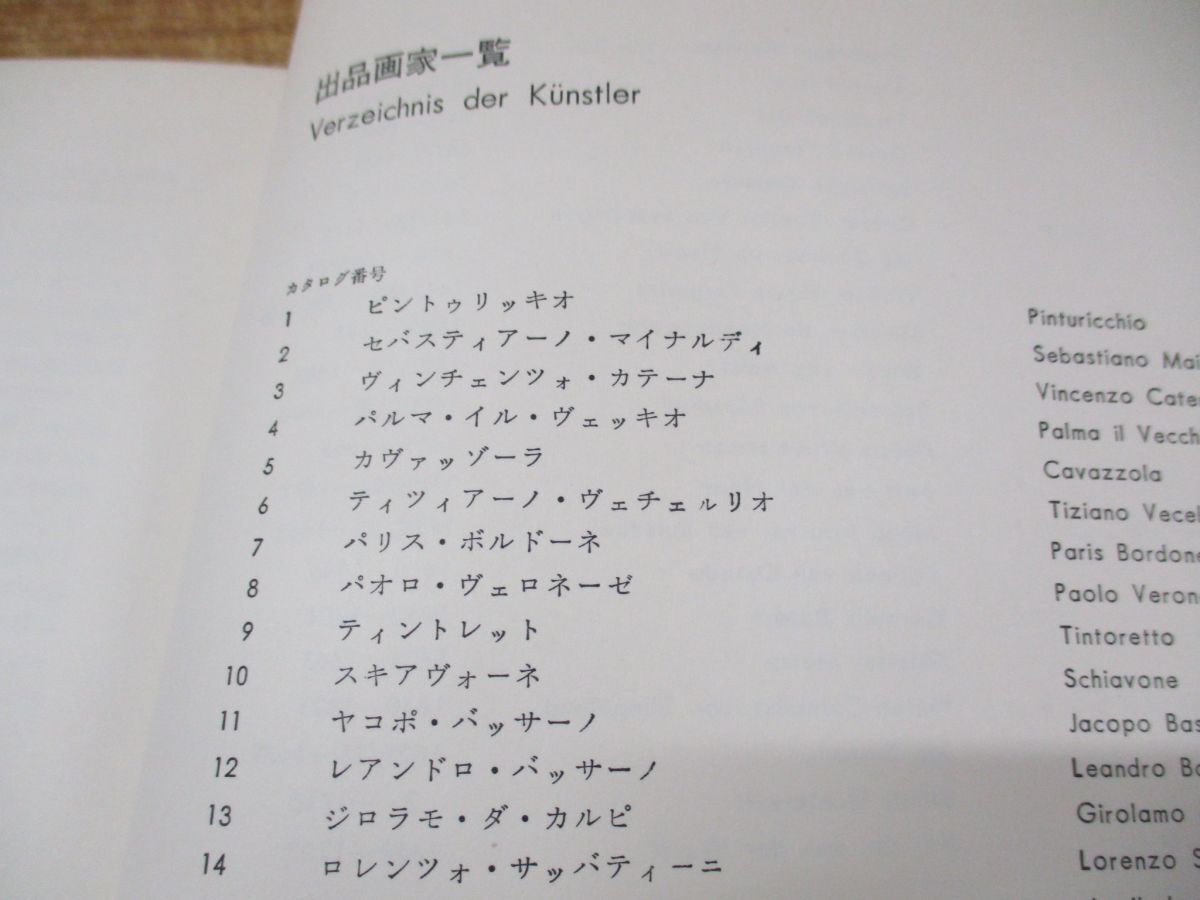 出品画家一覧
Verzeichnis der Künstler
カタログ番号
1 ピントゥリッキオ Pinturicchio
2 セバスティアーノ・マイナルディ Sebastiano Mai
3 ヴィンチェンツォ・カテーナ Vincenzo Cate
4 パルマ・イル・ヴェッキオ Palma il Vecch
5 カヴァッゾーラ Cavazzola
6 ティツィアーノ・ヴェチェルリオ Tiziano Vecel
7 パリス・ボルドーネ Paris Bordone
8 パオロ・ヴェロネーゼ Paolo Veron
9 ティントレット Tintoretto
10 スキアヴォーネ Schiavone
11 ヤコポ・バッサーノ Jacopo Bas
12 レアンドロ・バッサーノ Leandro Ba
13 ジロラモ・ダ・カルピ Girolamo
14 ロレンツォ・サッバティーニ Lorenzo S